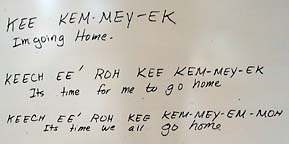 KEE KEM-MEY-EK
Im going Home.
KEECH EE' ROH KEE KEM-MEY-EK
Its time for me to go home
KEECH EE' ROH KEE KEM-MEY-EM-MOH
Its time we all go home